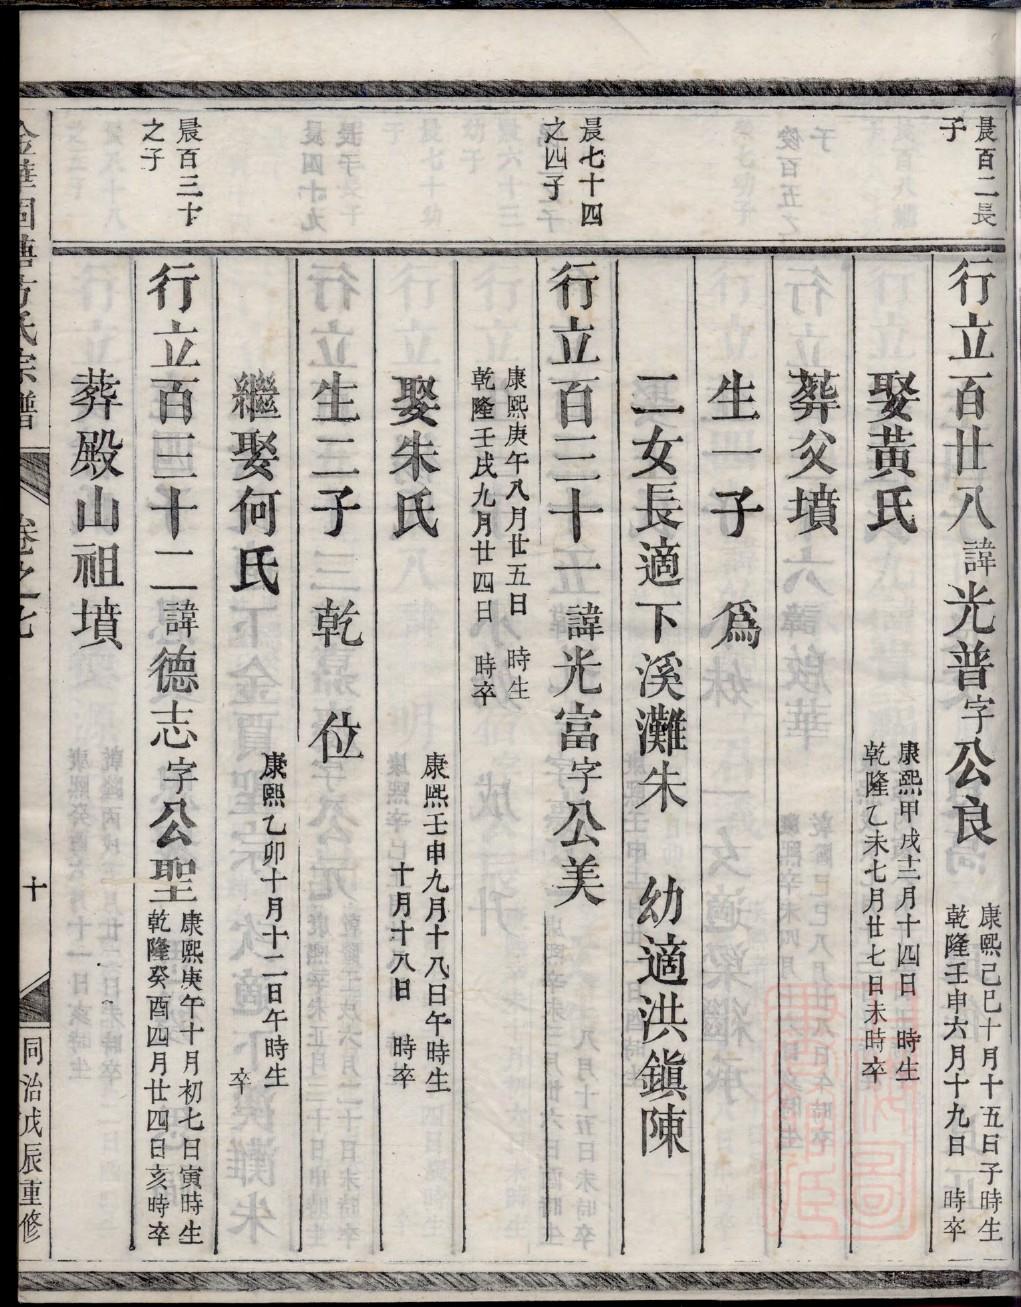 晨百二長
子
行立百廿八諱光普字公良
康熙己巳十月十五日子時生
乾隆壬申六月十九日 時卒
娶黃氏
康熙甲戌十二月十四日 時生
乾隆乙未七月廿七日未時卒
葬父墳
生一子 爲
二女長適下溪灘朱 幼適洪鎮陳
晨七十四
之四子
行立百三十一諱光富字公美
康熙庚午八月廿五日 時生
乾隆壬戌九月廿四日 時卒
娶朱氏
康熙壬申九月十八日午時生
十月十八日 時卒
生三子 乾 位
繼娶何氏
康熙乙卯十月十二日午時生
卒
晨百三十
之子
行立百三十二諱德志字公聖
康熙庚午十月初七日寅時生
乾隆癸酉四月廿四日亥時卒
葬殿山祖墳
方氏宗譜
卷之七
十
同治戊辰重修